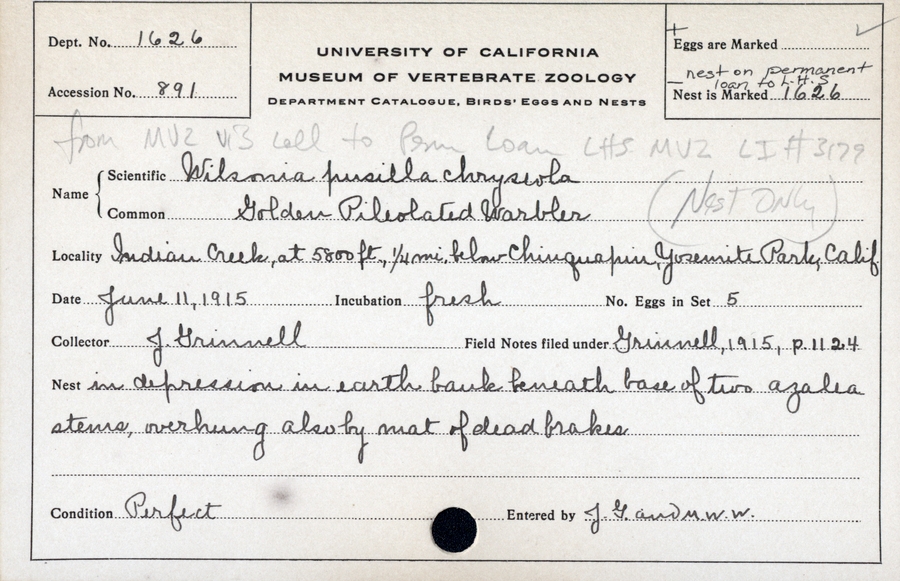 Dept. No. 1626
Accession No. 891
UNIVERSITY OF CALIFORNIA
MUSEUM OF VERTEBRATE ZOOLOGY
DEPARTMENT CATALOGUE, BIRDS' EGGS AND NESTS
+ ✓
Eggs are Marked
— nest on permanent
loan to L.H.S
Nest is Marked 1626
from MVZ to Perm Loan LHS MVZ LI # 3179
Name
Scientific Wilsonia pusilla chryseola
Common Golden Pileolated Warbler
(Nest ONLY)
Locality Indian Creek, at 5800 ft., 1/4 mi. below Chinquapin, Yosemite Park, Calif
Date June 11, 1915 Incubation fresh No. Eggs in Set 5
Collector J. Grinnell Field Notes filed under Grinnell, 1915, p. 1124
Nest in depression in earth bank beneath base of two azalea
stems, overhung also by mat of dead brakes
Condition Perfect Entered by J. G. and M.W.W.